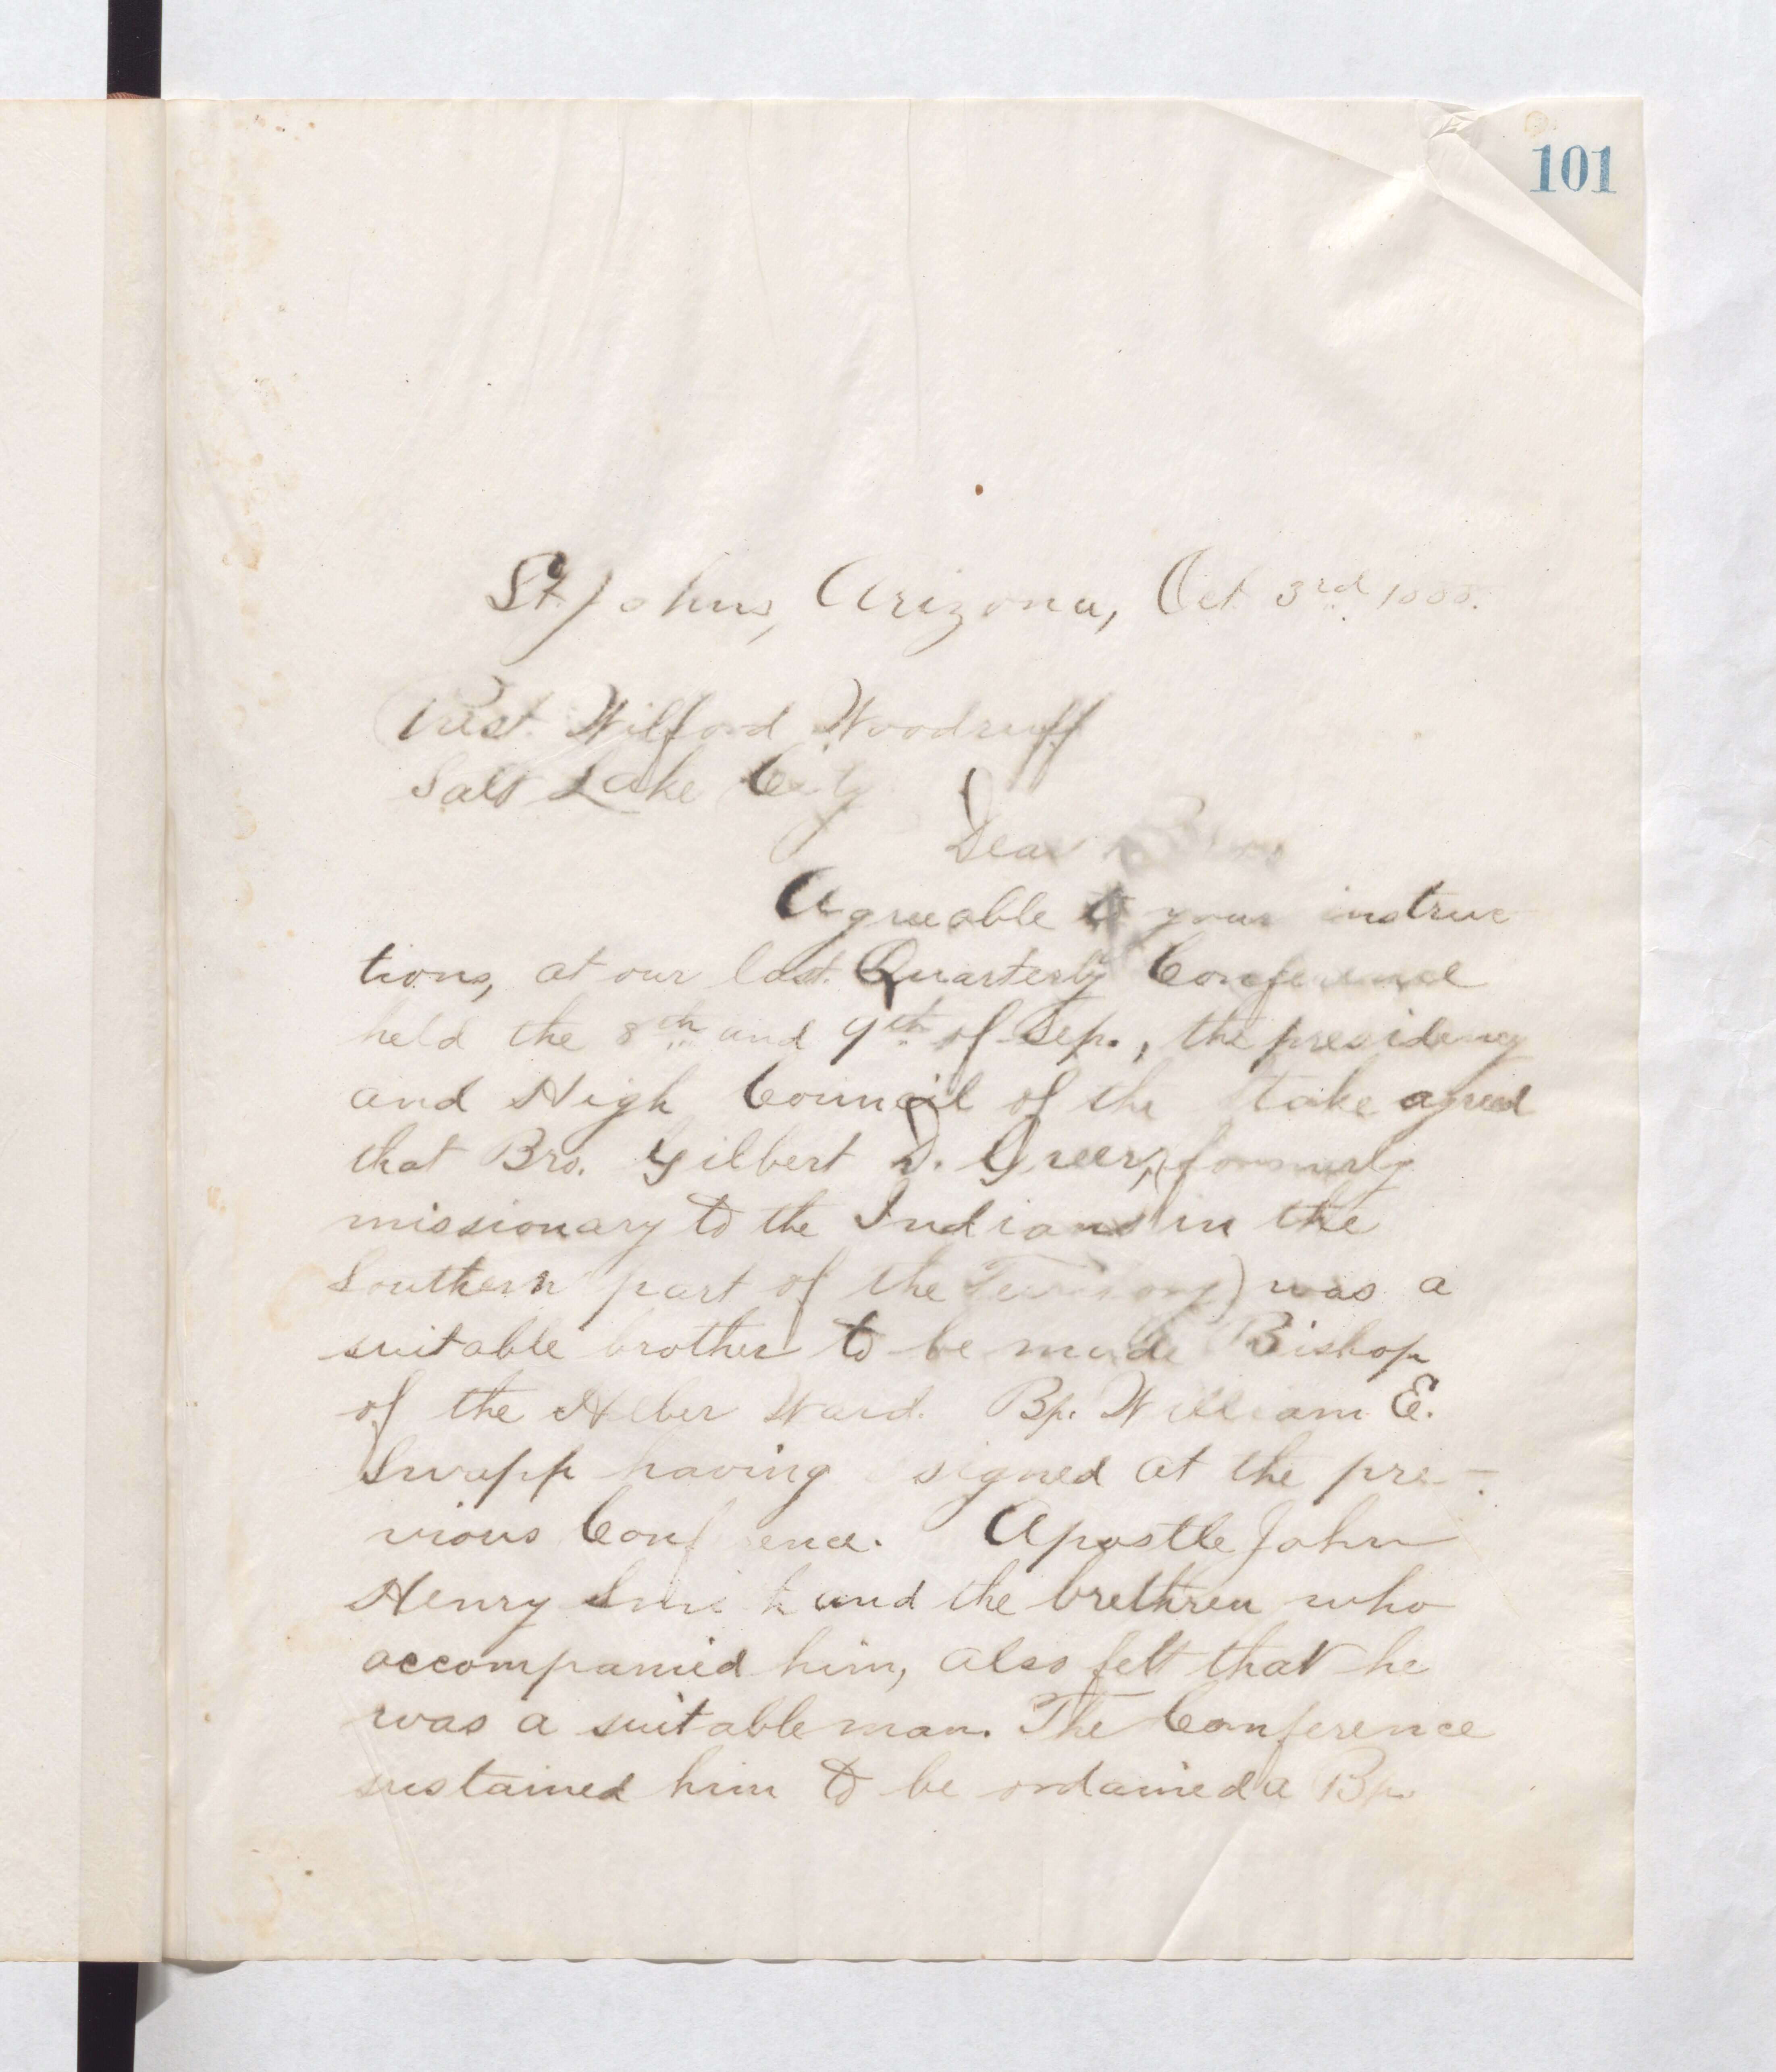 101
St. Johns, Arizona, Oct 3rd 1888.
Prest. Wilford Woodruff
Salt Lake City
Dear Bro.
Agreeable to your instruc
tions, at our last Quarterly Conference
held the 8th and 9th of Sep., the presidency
and High Council of the Stake agreed
that Bro. Gilbert D. Greer, (formerly
missionary to the Indians in the
Southern part of the Territory) was a
suitable brother to be made Bishop
of the Heber Ward. Bp. William E.
Swapp having signed at the pre-
vious Conf ence. Apostle John
Henry Smith and the brethren who
accompanied him, also felt that he
was a suitable man. The Conference
sustained him to be ordained a Bp.